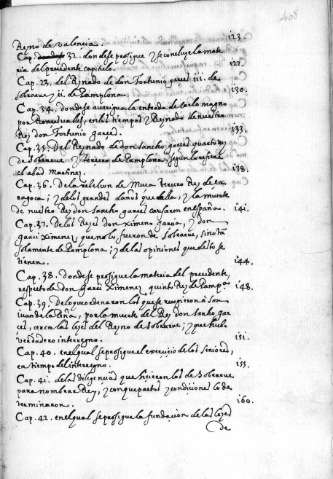 408
Reyno de valencia. 123
Cap. 32. donde se prosigue y se concluye la mate
ria del precedente capitulo. 127.
Cap. 33. del Reynado de don Fortunio garces iii. de
sobrarue y ii. de Pamplona. 130.
Cap. 34. donde se aueriguan la entrada de carlo magno
por Roncesualles, en los tiempos y Reynado de nuestro
Rey don Fortunio garces. 133.
Cap. 35. del Reynado de don sancho garces quarto Rey
de sobrarue y tercero de Pamplona, segun lo refiere
el abad Martinez. 138.
Cap. 36. de la rebelion de Muça tercero Rey de ça
ragoça; y de los grandes daños que della, y la muerte
de nuestro Rey don sancho garces causaron en españa. 141.
Cap. 37. de los Reyes don ximeno garcia, y don
garci ximenez, que no lo fueron de sobrarue, sino tan
solamente de Pamplona; y de las opiniones que desto se
tienen. 144.
Cap. 38. donde se prosigue la materia del precedente,
respecto de don Garci Ximenez, quinto Rey de Pamplona. 148.
Cap. 39. de lo que ordenaron los que se recogieron a son
iuan de la Peña, por la muerte del Rey don sancho gar
ces, acerca las leyes del Reyno de sobrarue, y que huuo
verdadero interregno. 151.
Cap. 40. en el qual se prosigue el exercicio de los seniores,
en tiempo del interregno. 155.
Cap. 41. de las diligencias que hizieron los de sobrarue
para nombrar Rey, y con que pactos y condiciones lo de
terminaron. 160.
Cap. 42. en el qual se prosigue la fundacion de las leyes
de